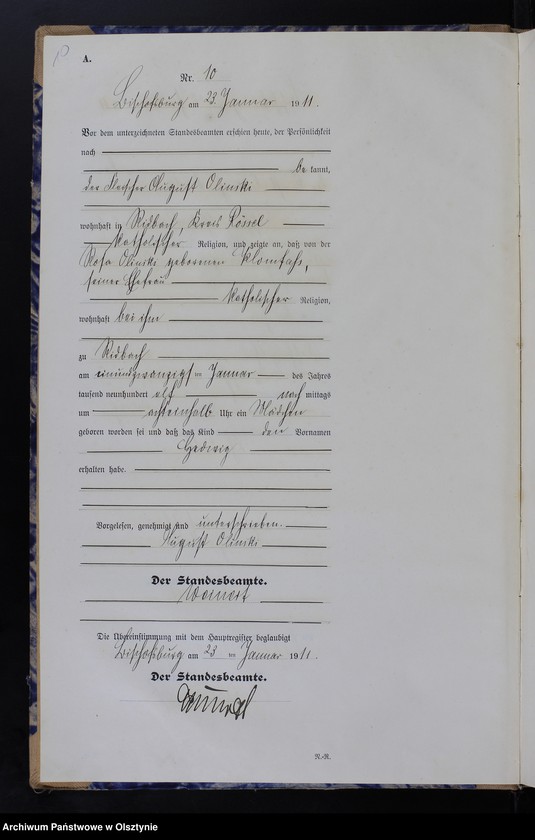 A.
Nr. 10
Bischofsburg am 23. Januar 1911.
Vor dem unterzeichneten Standesbeamten erschien heute, der Persönlichkeit
nach
be kannt,
der Fleischer August Olinski
wohnhaft in Ridbach, Kreis Rössel
katholischer Religion, und zeigte an, daß von der
Rosa Olinski geborenen Klomfaß,
seiner Ehefrau
katholischer Religion,
wohnhaft bei ihm
zu Ridbach
am einundzwanzigsten Januar des Jahres
tausend neunhundert elf nach mittags
um achteinhalb Uhr ein Mädchen
geboren worden sei und daß das Kind den Vornamen
Hedwig
erhalten habe.
Vorgelesen, genehmigt und unterschrieben.
August Olinski
Der Standesbeamte.
Weinert
Die Übereinstimmung mit dem Hauptregister beglaubigt
Bischofsburg am 23 ten Januar 1911.
Der Standesbeamte.
N.-R.
Archiwum Państwowe w Olsztynie